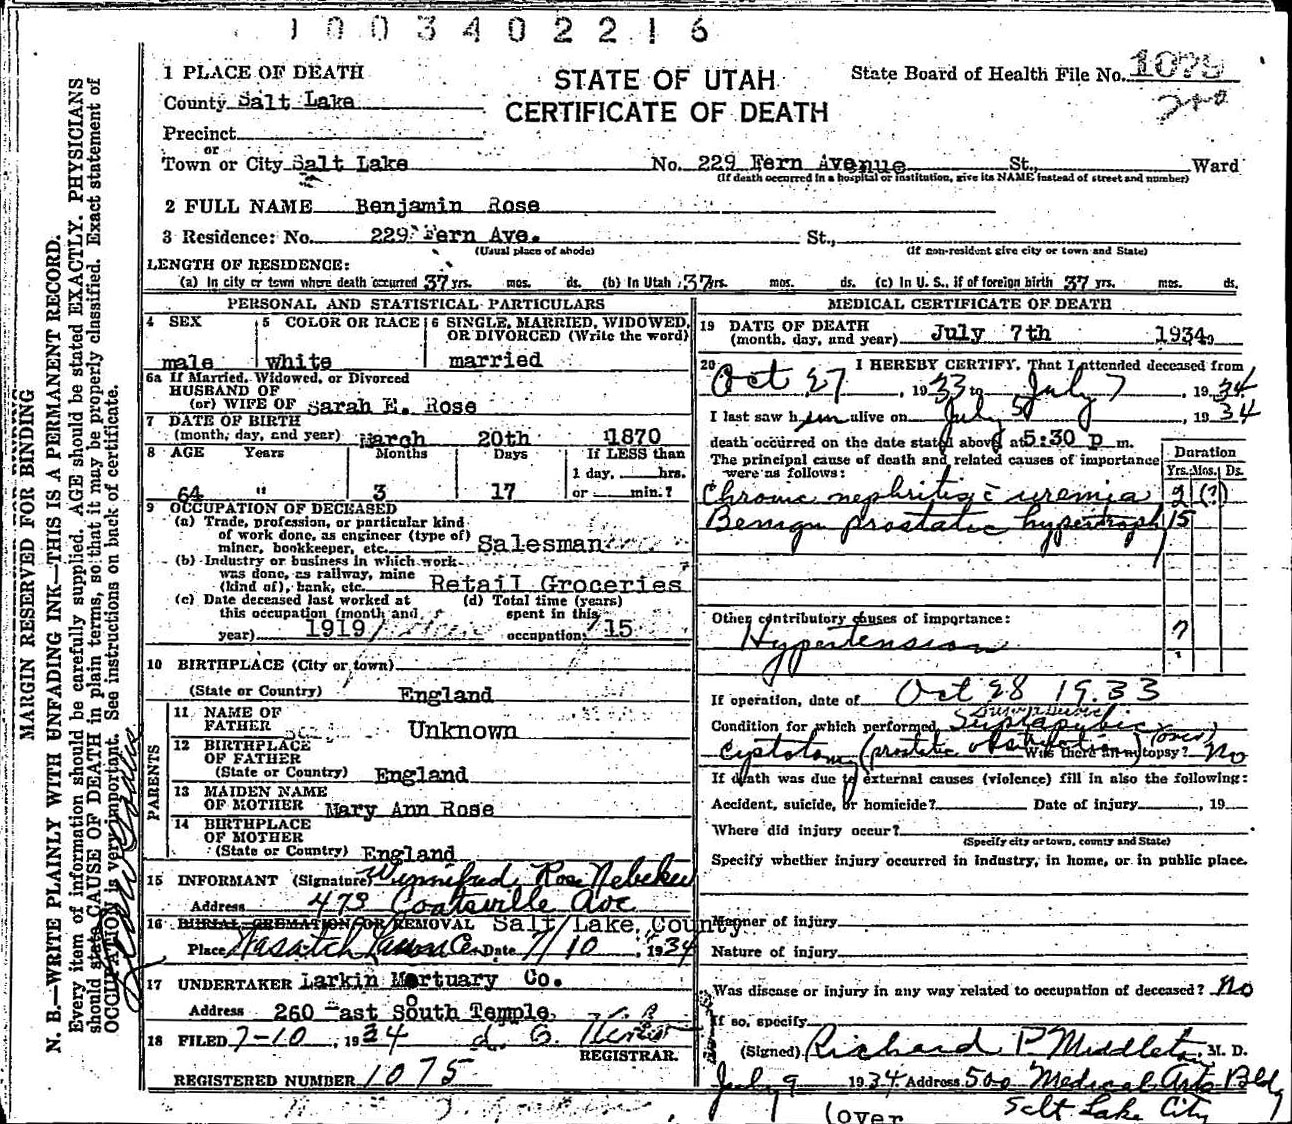 1003402216
1 PLACE OF DEATH
STATE OF UTAH
CERTIFICATE OF DEATH
State Board of Health File No. 1075
County Salt Lake
Precinct
or
Town or City Salt Lake No. 229 Fern Avenue St., Ward
(If death occurred in a hospital or institution, give its NAME instead of street and number)
2 FULL NAME Benjamin Rose
3 Residence: No. 229 Fern Ave. St.,
(Usual place of abode) (If non-resident give city or town and State)
LENGTH OF RESIDENCE:
(a) In city or town where death occurred 37 yrs. mos. ds. (b) In Utah 37 yrs. mos. ds. (c) In U. S., if of foreign birth 37 yrs. mos. ds.
PERSONAL AND STATISTICAL PARTICULARS
4 SEX male
5 COLOR OR RACE white
6 SINGLE, MARRIED, WIDOWED, OR DIVORCED (Write the word) married
6a If Married, Widowed, or Divorced
HUSBAND OF
(or) WIFE OF Sarah E. Rose
7 DATE OF BIRTH
(month, day, and year) March 20th 1870
8 AGE Years Months Days If LESS than
1 day, hrs.
64 3 17 or min.?
9 OCCUPATION OF DECEASED
(a) Trade, profession, or particular kind
of work done, as engineer (type of)
miner, bookkeeper, etc. Salesman
(b) Industry or business in which work
was done, as railway, mine
(kind of), bank, etc. Retail Groceries
(c) Date deceased last worked at
this occupation (month and
year) 1919
(d) Total time (years)
spent in this
occupation: 15
10 BIRTHPLACE (City or town)
(State or Country) England
PARENTS
11 NAME OF
FATHER Unknown
12 BIRTHPLACE
OF FATHER
(State or Country) England
13 MAIDEN NAME
OF MOTHER Mary Ann Rose
14 BIRTHPLACE
OF MOTHER
(State or Country) England
15 INFORMANT (Signature) Winnifred Rose Nebeker
Address 473 Coatsville Ave
16 BURIAL CREMATION OR REMOVAL Salt Lake County
Place Wasatch Lawn Cem Date 7/10, 1934
17 UNDERTAKER Larkin Mortuary Co.
Address 260 East South Temple
18 FILED 7-10, 1934
REGISTRAR.
REGISTERED NUMBER 1075
MEDICAL CERTIFICATE OF DEATH
19 DATE OF DEATH
(month, day, and year) July 7th 1934
20 I HEREBY CERTIFY, That I attended deceased from
Oct 27, 1933 to July 7, 1934
I last saw him alive on July 5, 1934
death occurred on the date stated above at 5:30 p m.
The principal cause of death and related causes of importance
were as follows:
Duration
Yrs. Mos. Ds.
Chronic nephritis c̄ uremia 2 (?)
Benign prostatic hypertrophy 15
Other contributory causes of importance:
Hypertension ?
If operation, date of Oct 28 1933
Condition for which performed Suprapubic
cystotomy (prostatic obstruction) (over)
Was there an autopsy? No
If death was due to external causes (violence) fill in also the following:
Accident, suicide, or homicide? Date of injury, 19
Where did injury occur?
(Specify city or town, county and State)
Specify whether injury occurred in industry, in home, or in public place.
Manner of injury
Nature of injury
Was disease or injury in any way related to occupation of deceased? No
If so, specify
(Signed) Richard P Middleton, M. D.
July 9 1934 Address 500 Medical Arts Bldg
Salt Lake City
(over
MARGIN RESERVED FOR BINDING
N. B.—WRITE PLAINLY WITH UNFADING INK—THIS IS A PERMANENT RECORD.
Every item of information should be carefully supplied. AGE should be stated EXACTLY. PHYSICIANS
should state CAUSE OF DEATH in plain terms, so that it may be properly classified. Exact statement of
OCCUPATION is very important. See instructions on back of certificate.